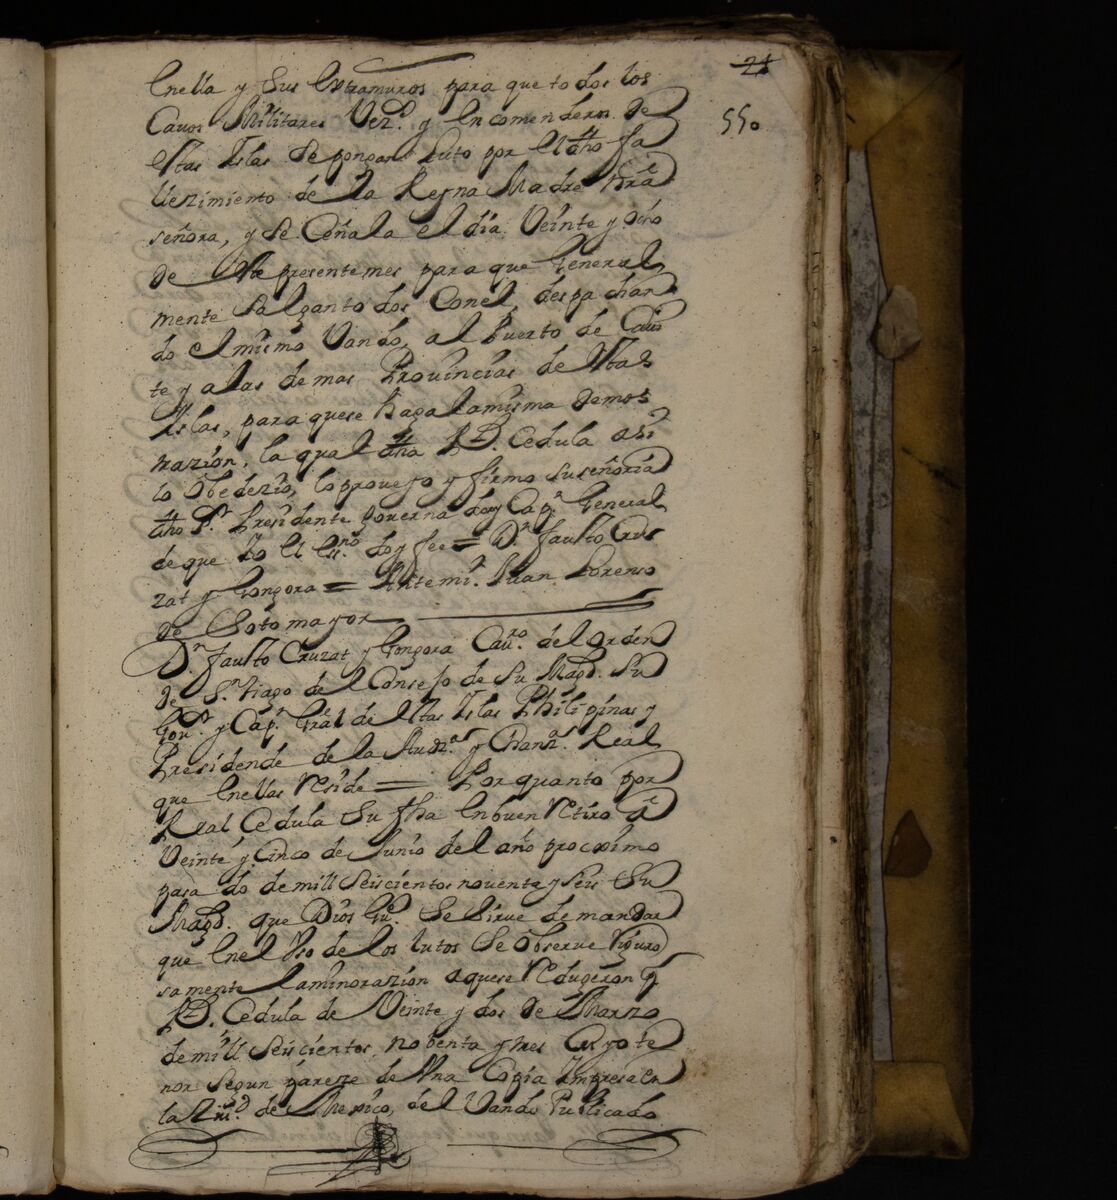 21
550
Enella y sus extramuros para que todos los
Cavos Militares Vezos. y Encomenderos de
estas Islas se pongan luto por el dho fa
llezimiento de la Reyna Madre nra
señora, y se Ceñala el dia Veinte y ocho
de este presente mes para que General
mente salgan todos Con el, despachan
do el mismo Vando, al Puerto de Cavi
te y a las demas Provincias de estas
Islas, para que se haga la misma demos
trazion, la qual dha Rl. Cedula assi
lo Obedezio, lo proveyo y firmo su señoria
dho Sr. Presidente governador y Capn. General
de que Yo el Essno. doy fee = Dn. Fausto Cru
zat y Gongora = Ante mi. Juan Lorenso
de Sotomayor
Dn. Fausto Cruzat y Gongora Cavro. del Orden
de Sntiago del Consejo de Su Magd. Su
Govor. y Capn. Gral de estas Islas Philipinas y
Presidende de la Audza. y Chanza. Real
que En ellas Reside = Por quanto por
Real Cedula Su fha En buen Retiro á
Veinte y Cinco de Junio del año procximo
pasado de mill Seiscientos noventa y seis Su
Magd. que Dios Gue. Se sirve de mandar
que En el Vso de los lutos se Observe Riguro
samente La minorazion a que se Redugeron pr.
Rl. Cedula de Veinte y dos de Marzo
de mill Seiscientos nobenta y tres Cuyo te
nor segun pareze de Vna Copia Impresa en
la Ziud. de Mexico, del Vando Publicado